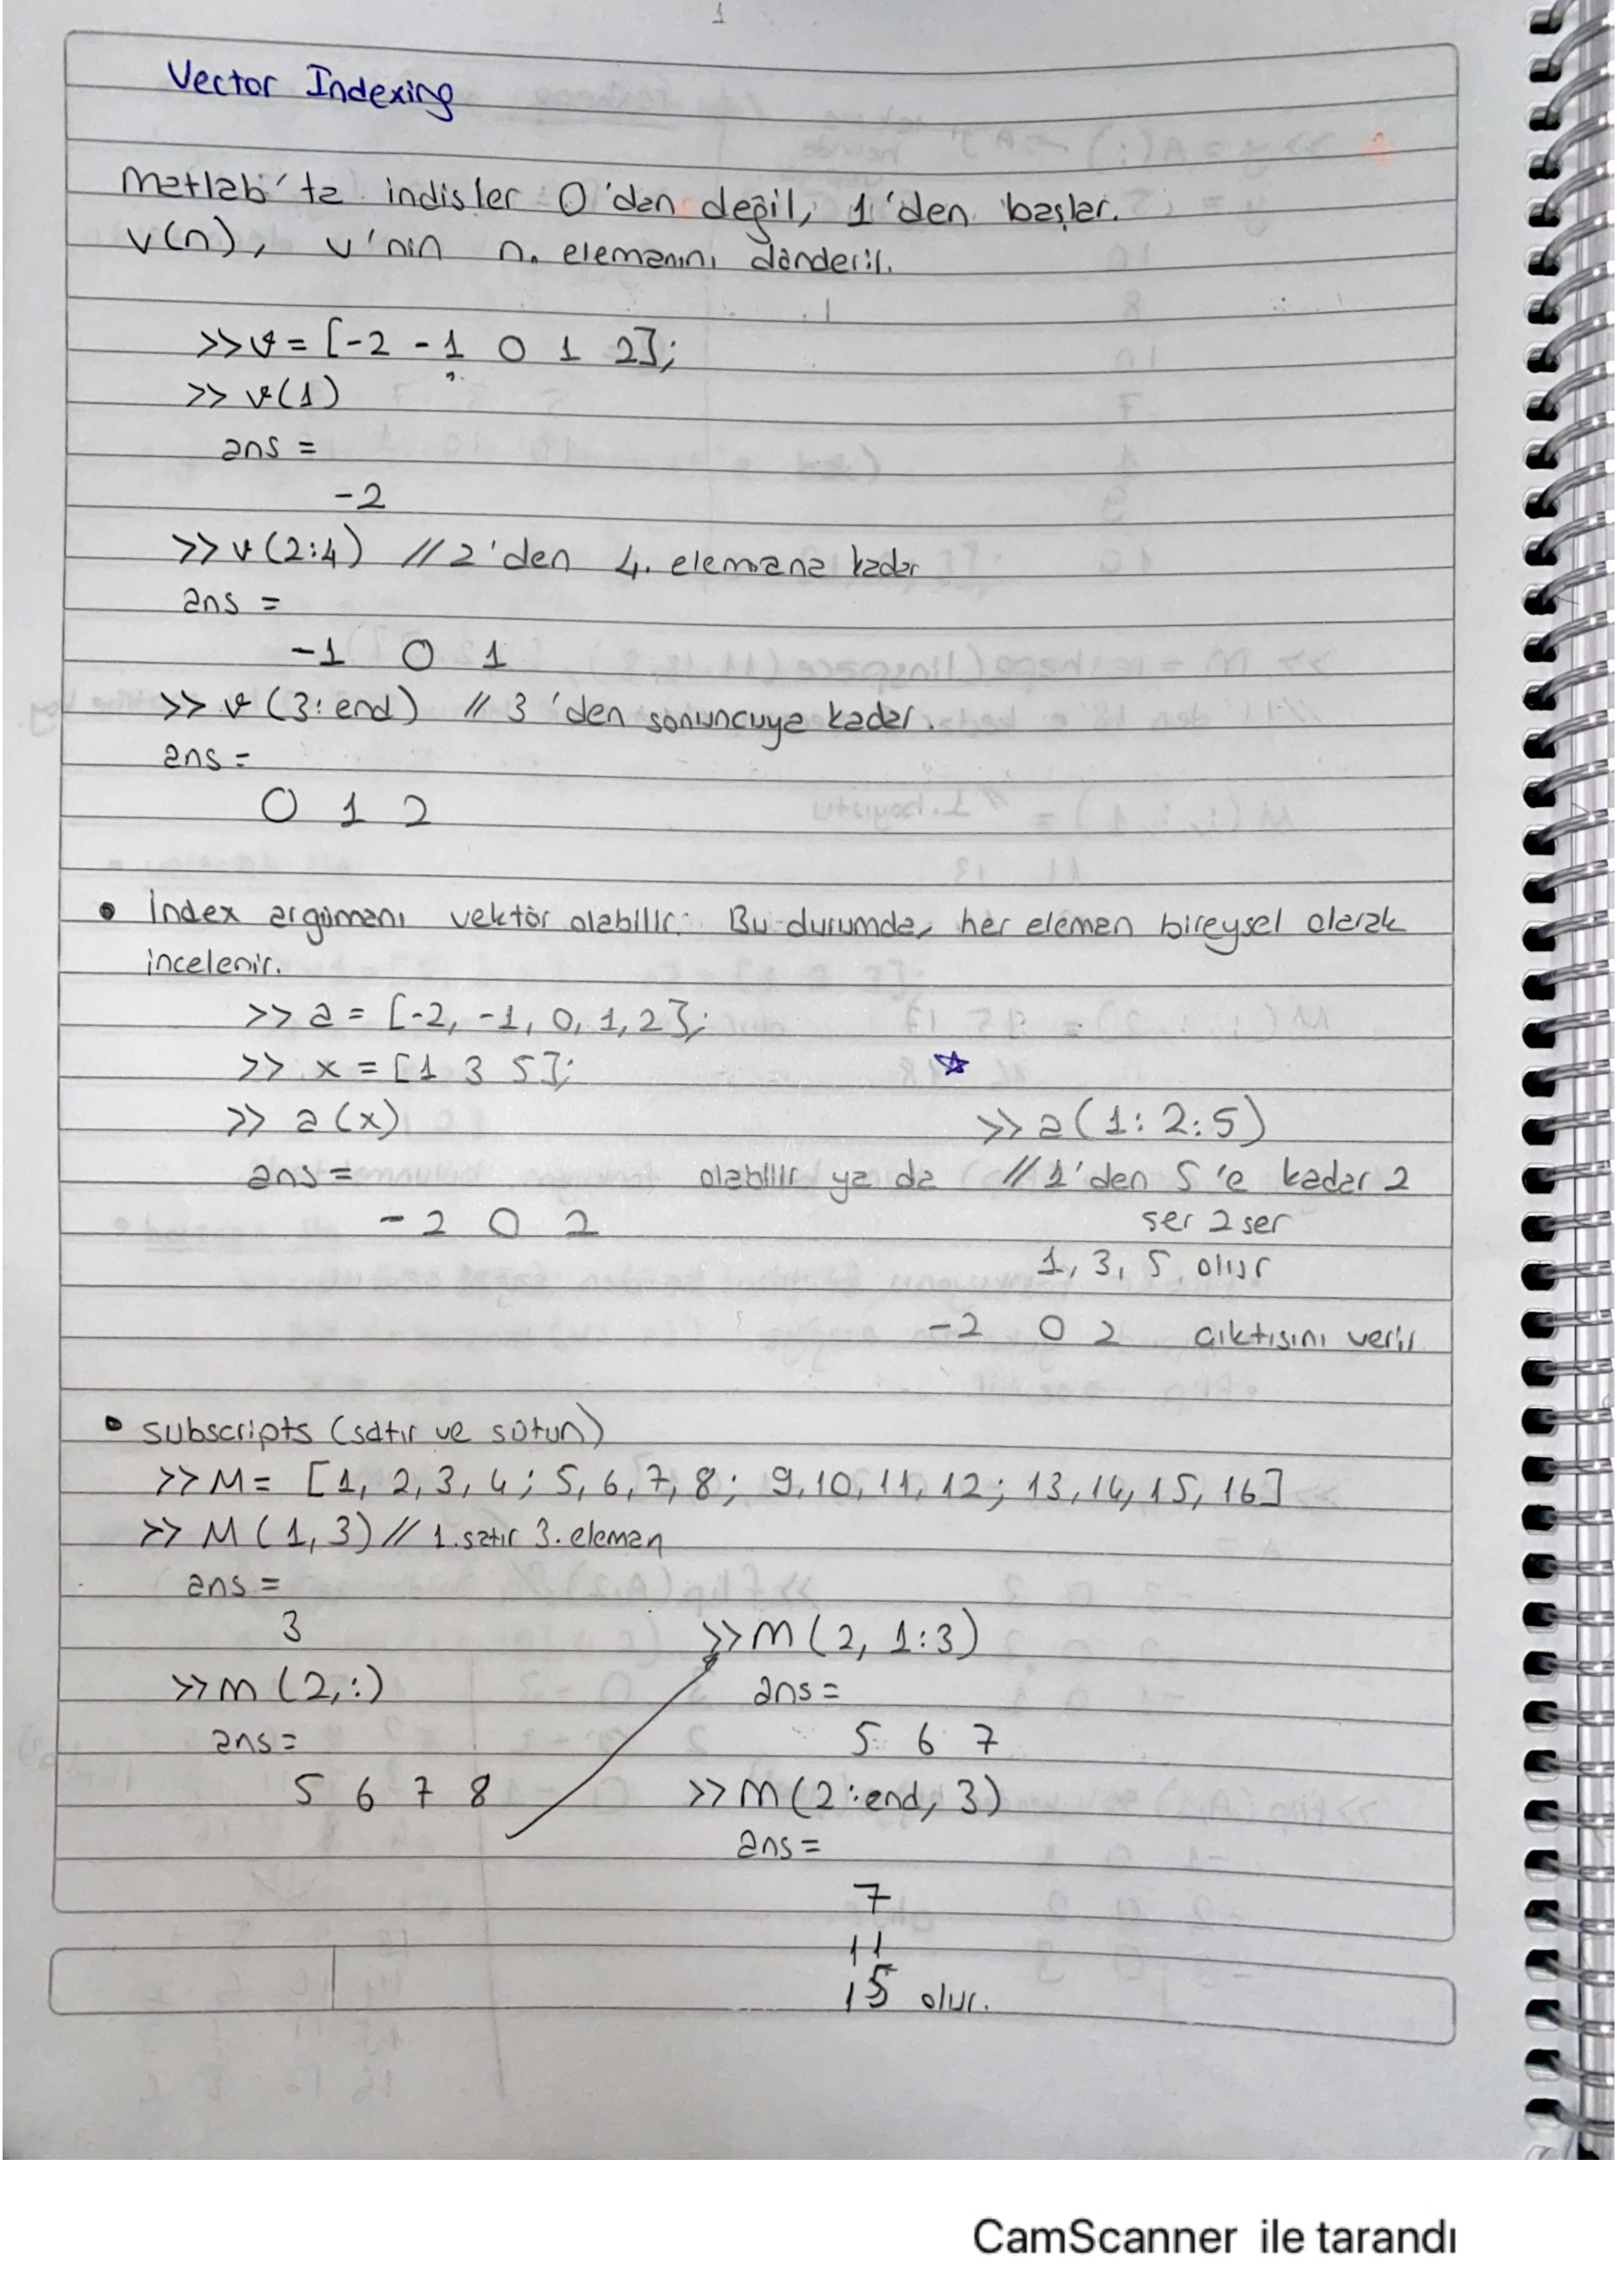 1
Vector Indexing
Matlab'ta indisler 0'dan değil, 1'den başlar.
v(n), v'nin n. elemanını dönderir.
>>v = [-2 -1 0 1 2];
>> v(1)
ans =
-2
>> v(2:4) // 2'den 4. elemana kadar
ans =
-1 0 1
>> v (3:end) // 3'den sonuncuya kadar.
ans =
0 1 2
• İndex argümanı vektör olabilir. Bu durumda, her elemen bireysel olarak
incelenir.
>> a = [-2, -1, 0, 1, 2];
>> x = [1 3 5];
>> a (x)
>> a (1:2:5)
ans = olabilir ya da // 1'den 5'e kadar 2
-2 0 2 ser 2 ser
1, 3, 5 olur
-2 0 2 çıktısını verir
• subscripts (satır ve sütun)
>> M = [1, 2, 3, 4; 5, 6, 7, 8; 9, 10, 11, 12; 13, 14, 15, 16]
>> M (1,3) // 1. satır 3. eleman
ans =
3
>> m (2,:)
ans =
5 6 7 8
>> m (2, 1:3)
ans =
5 6 7
>> m (2:end, 3)
ans =
7
11
15 olur.
CamScanner ile tarandı